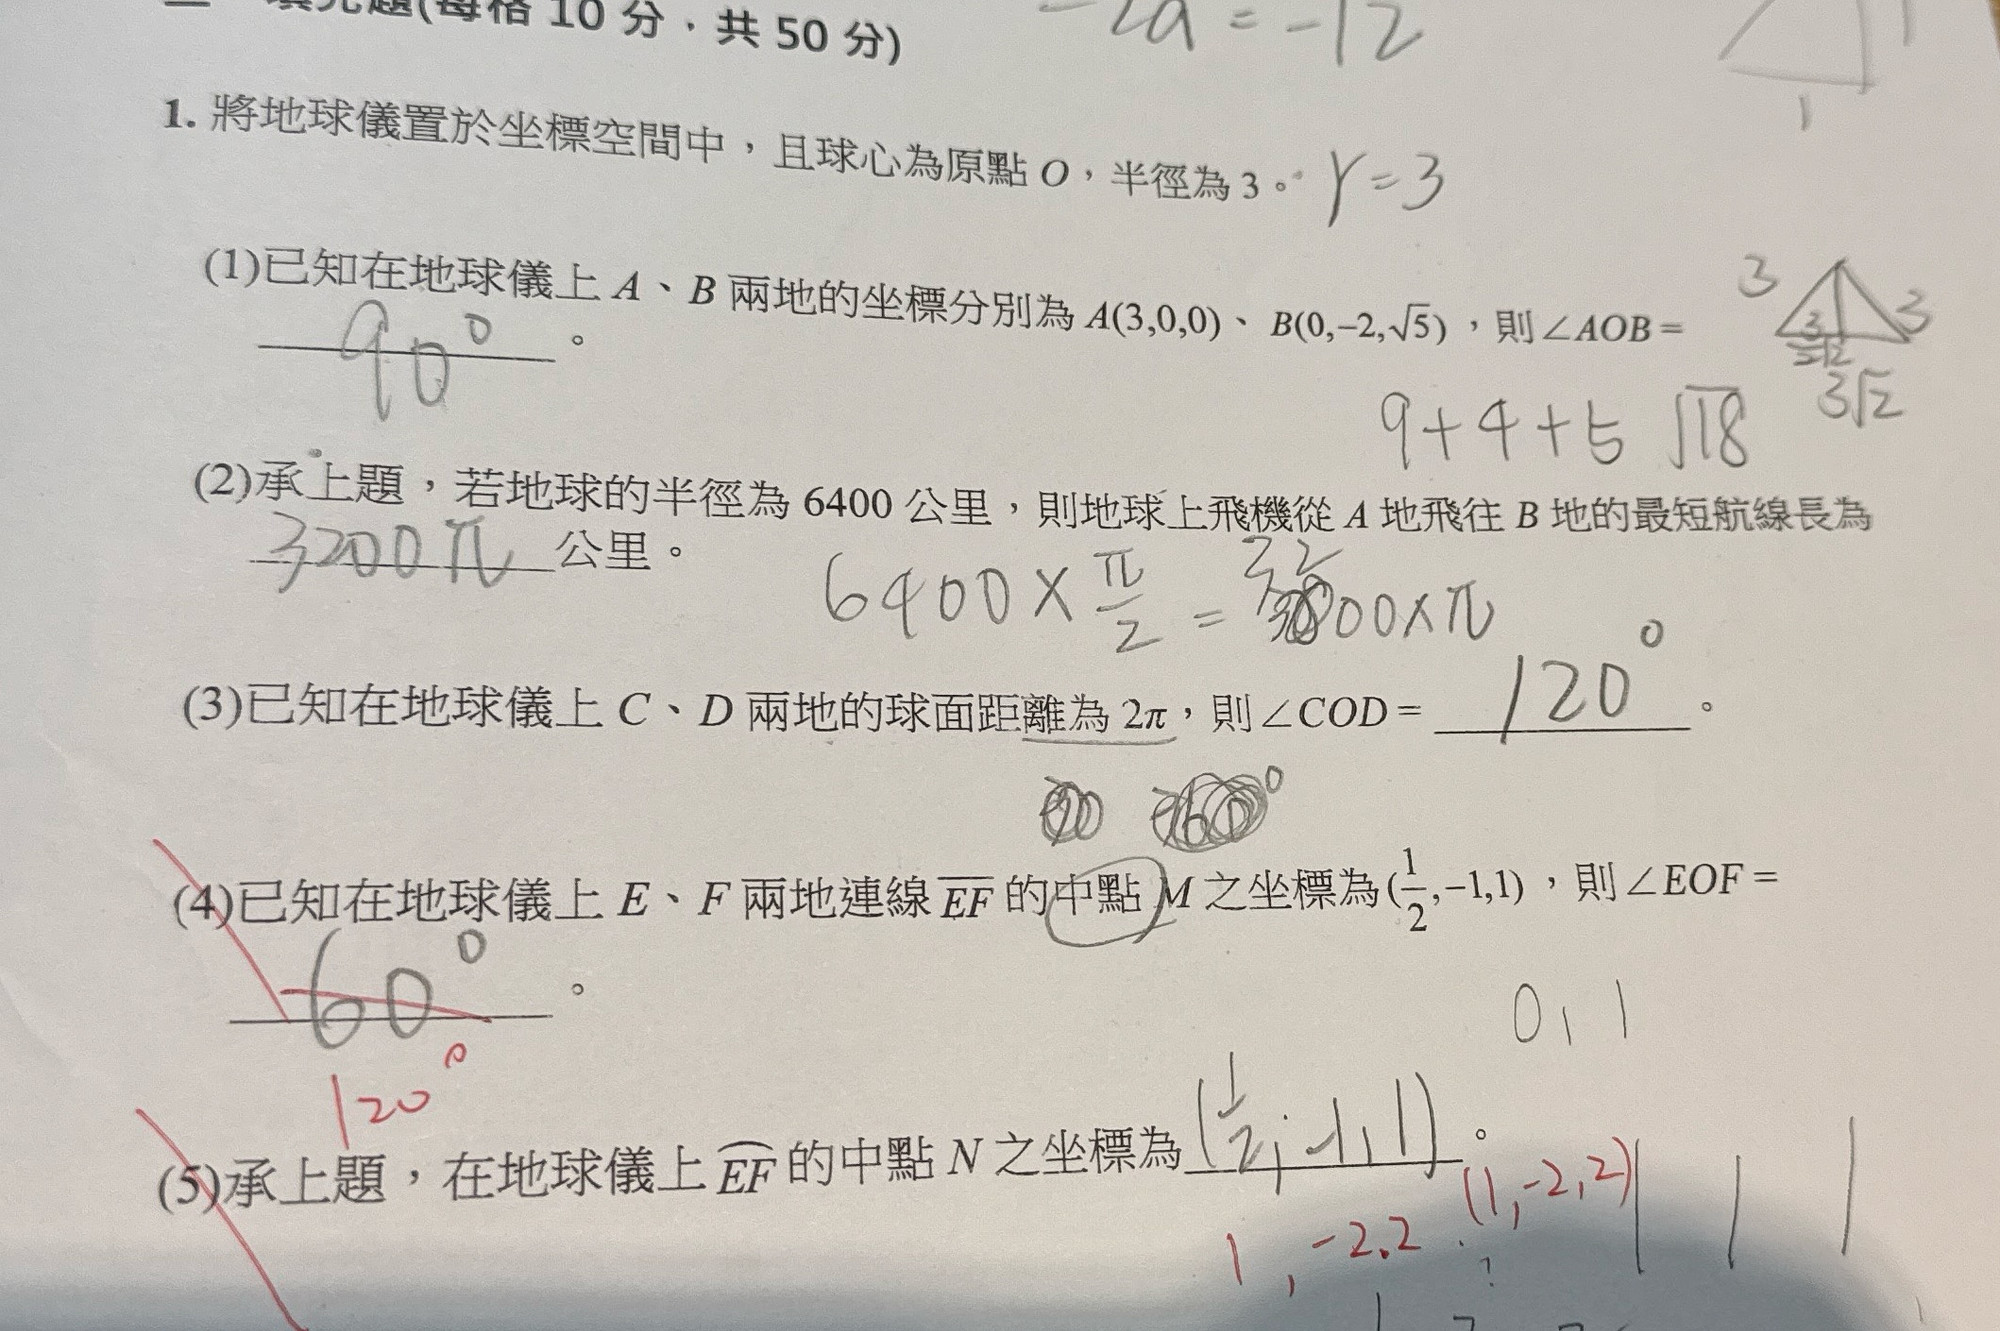 填充題(每格 10 分,共 50 分)
-2a = -12
1
1. 將地球儀置於坐標空間中,且球心為原點 O,半徑為 3。 r=3
(1)已知在地球儀上 A、B 兩地的坐標分別為 A(3,0,0)、B(0,−2,√5),則∠AOB=
90°。
3 3
3√2
9+4+5 √18
(2)承上題,若地球的半徑為 6400 公里,則地球上飛機從 A 地飛往 B 地的最短航線長為
3200π 公里。
6400 × π/2 = 3200×π
(3)已知在地球儀上 C、D 兩地的球面距離為 2π,則∠COD= 120°。
(4)已知在地球儀上 E、F 兩地連線 EF 的中點 M 之坐標為(1/2,−1,1),則∠EOF=
60°。
0, 1
120°
(5)承上題,在地球儀上 EF 的中點 N 之坐標為 (1/2, -1, 1)。
(1,-2,2)
1, -2.2